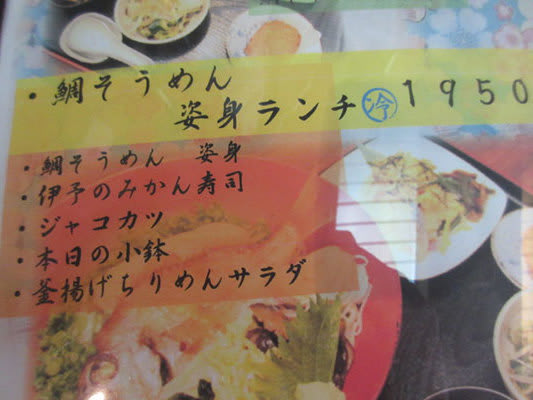 ・鯛そうめん
姿身ランチ 冷 1950
・鯛そうめん 姿身
・伊予のみかん寿司
・ジャコカツ
・本日の小鉢
・釜揚げちりめんサラダ